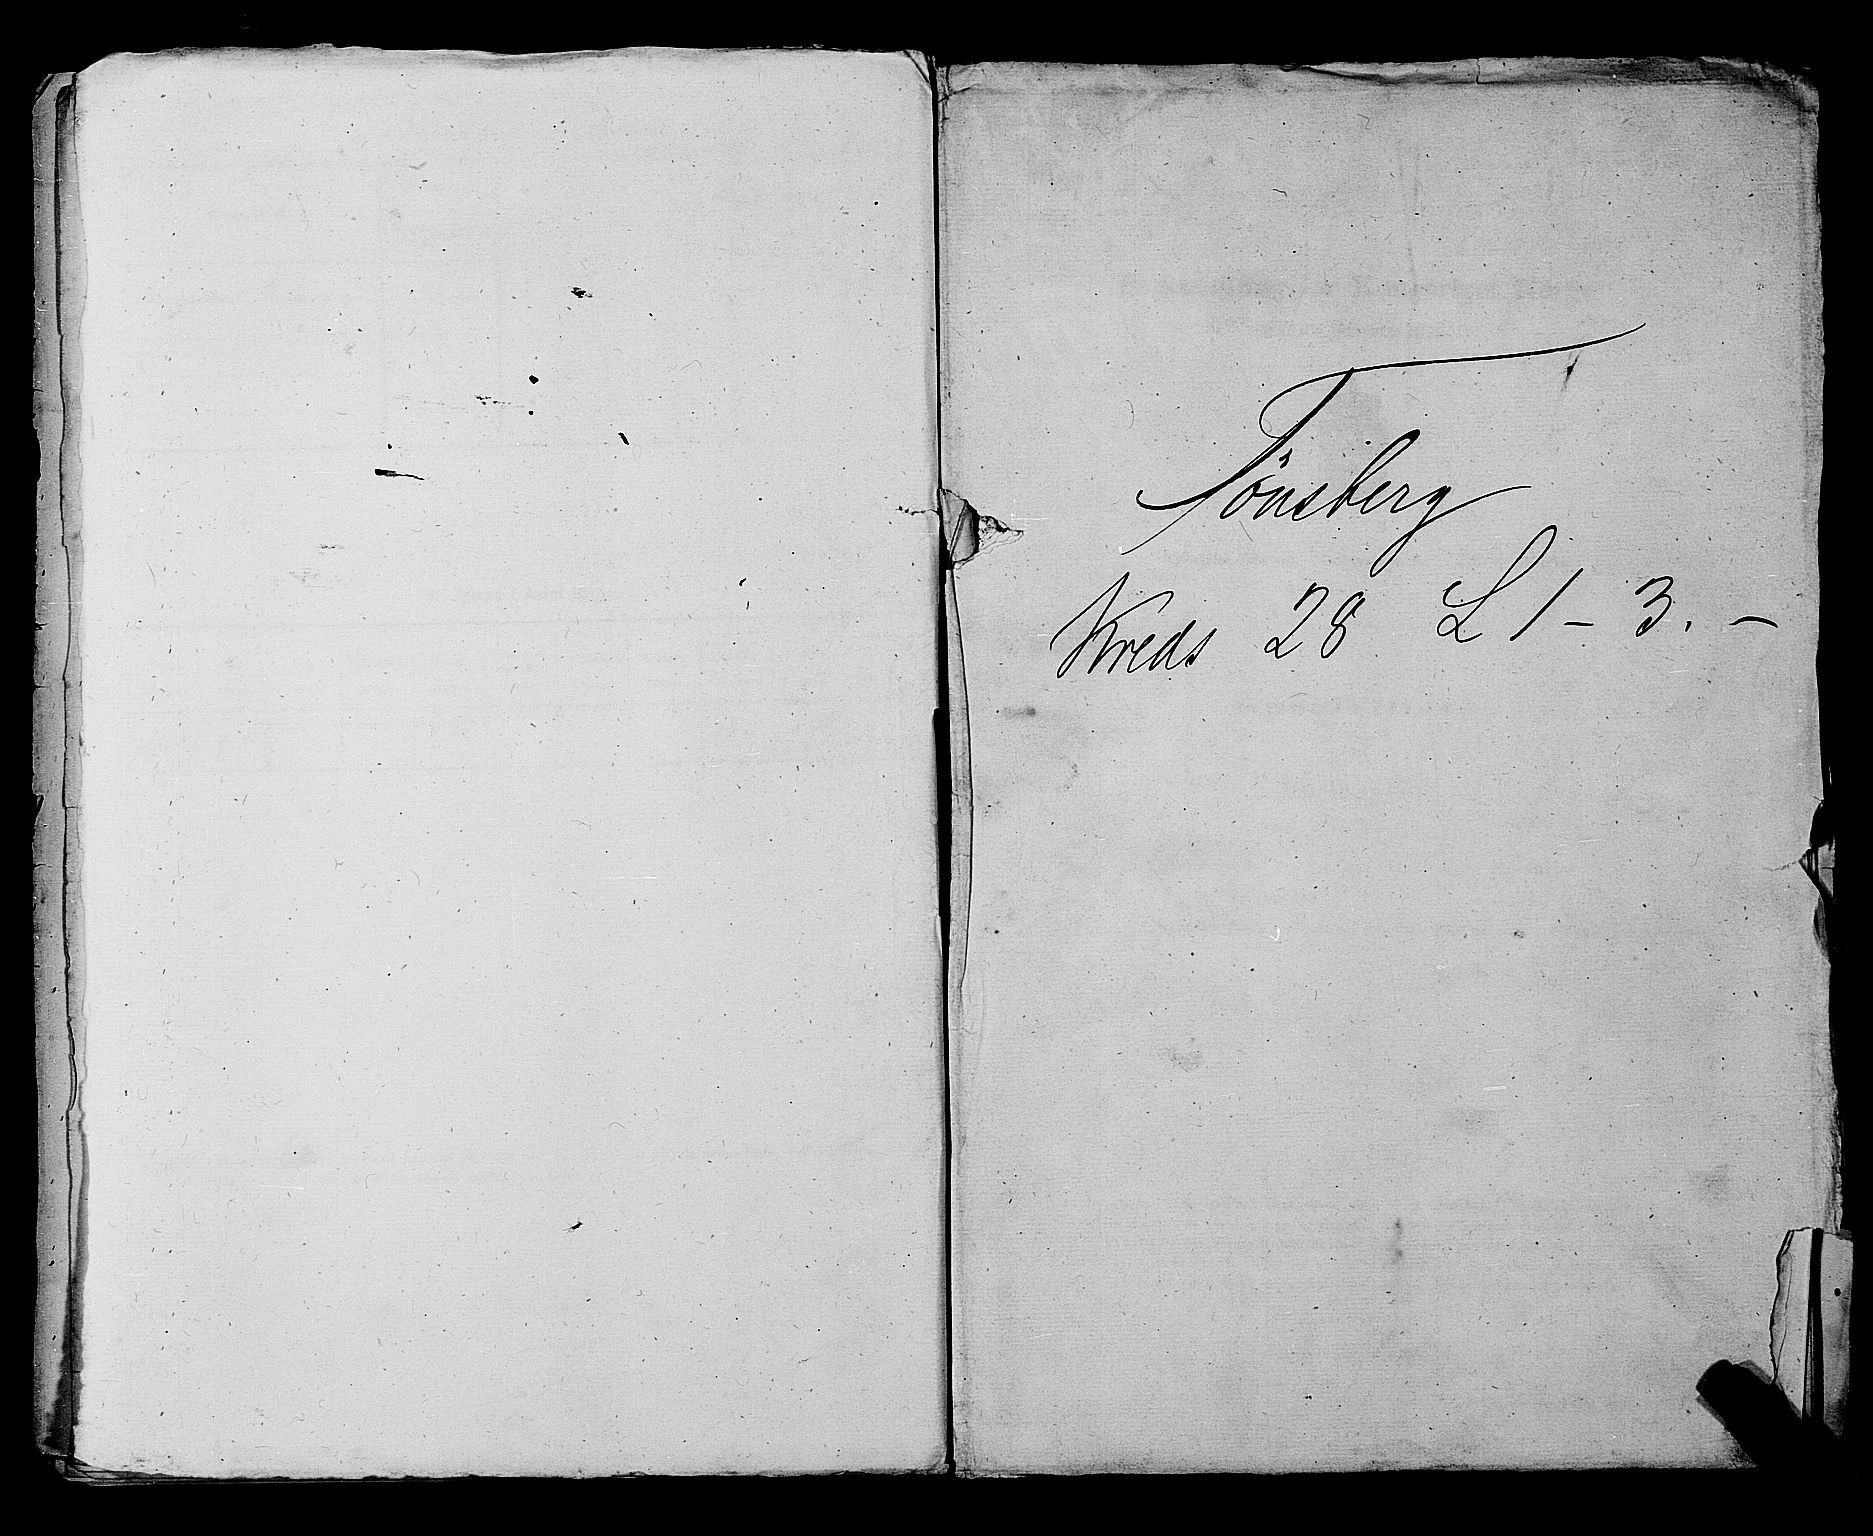 Tönsberg
Kreds 28 L 1 – 3. –